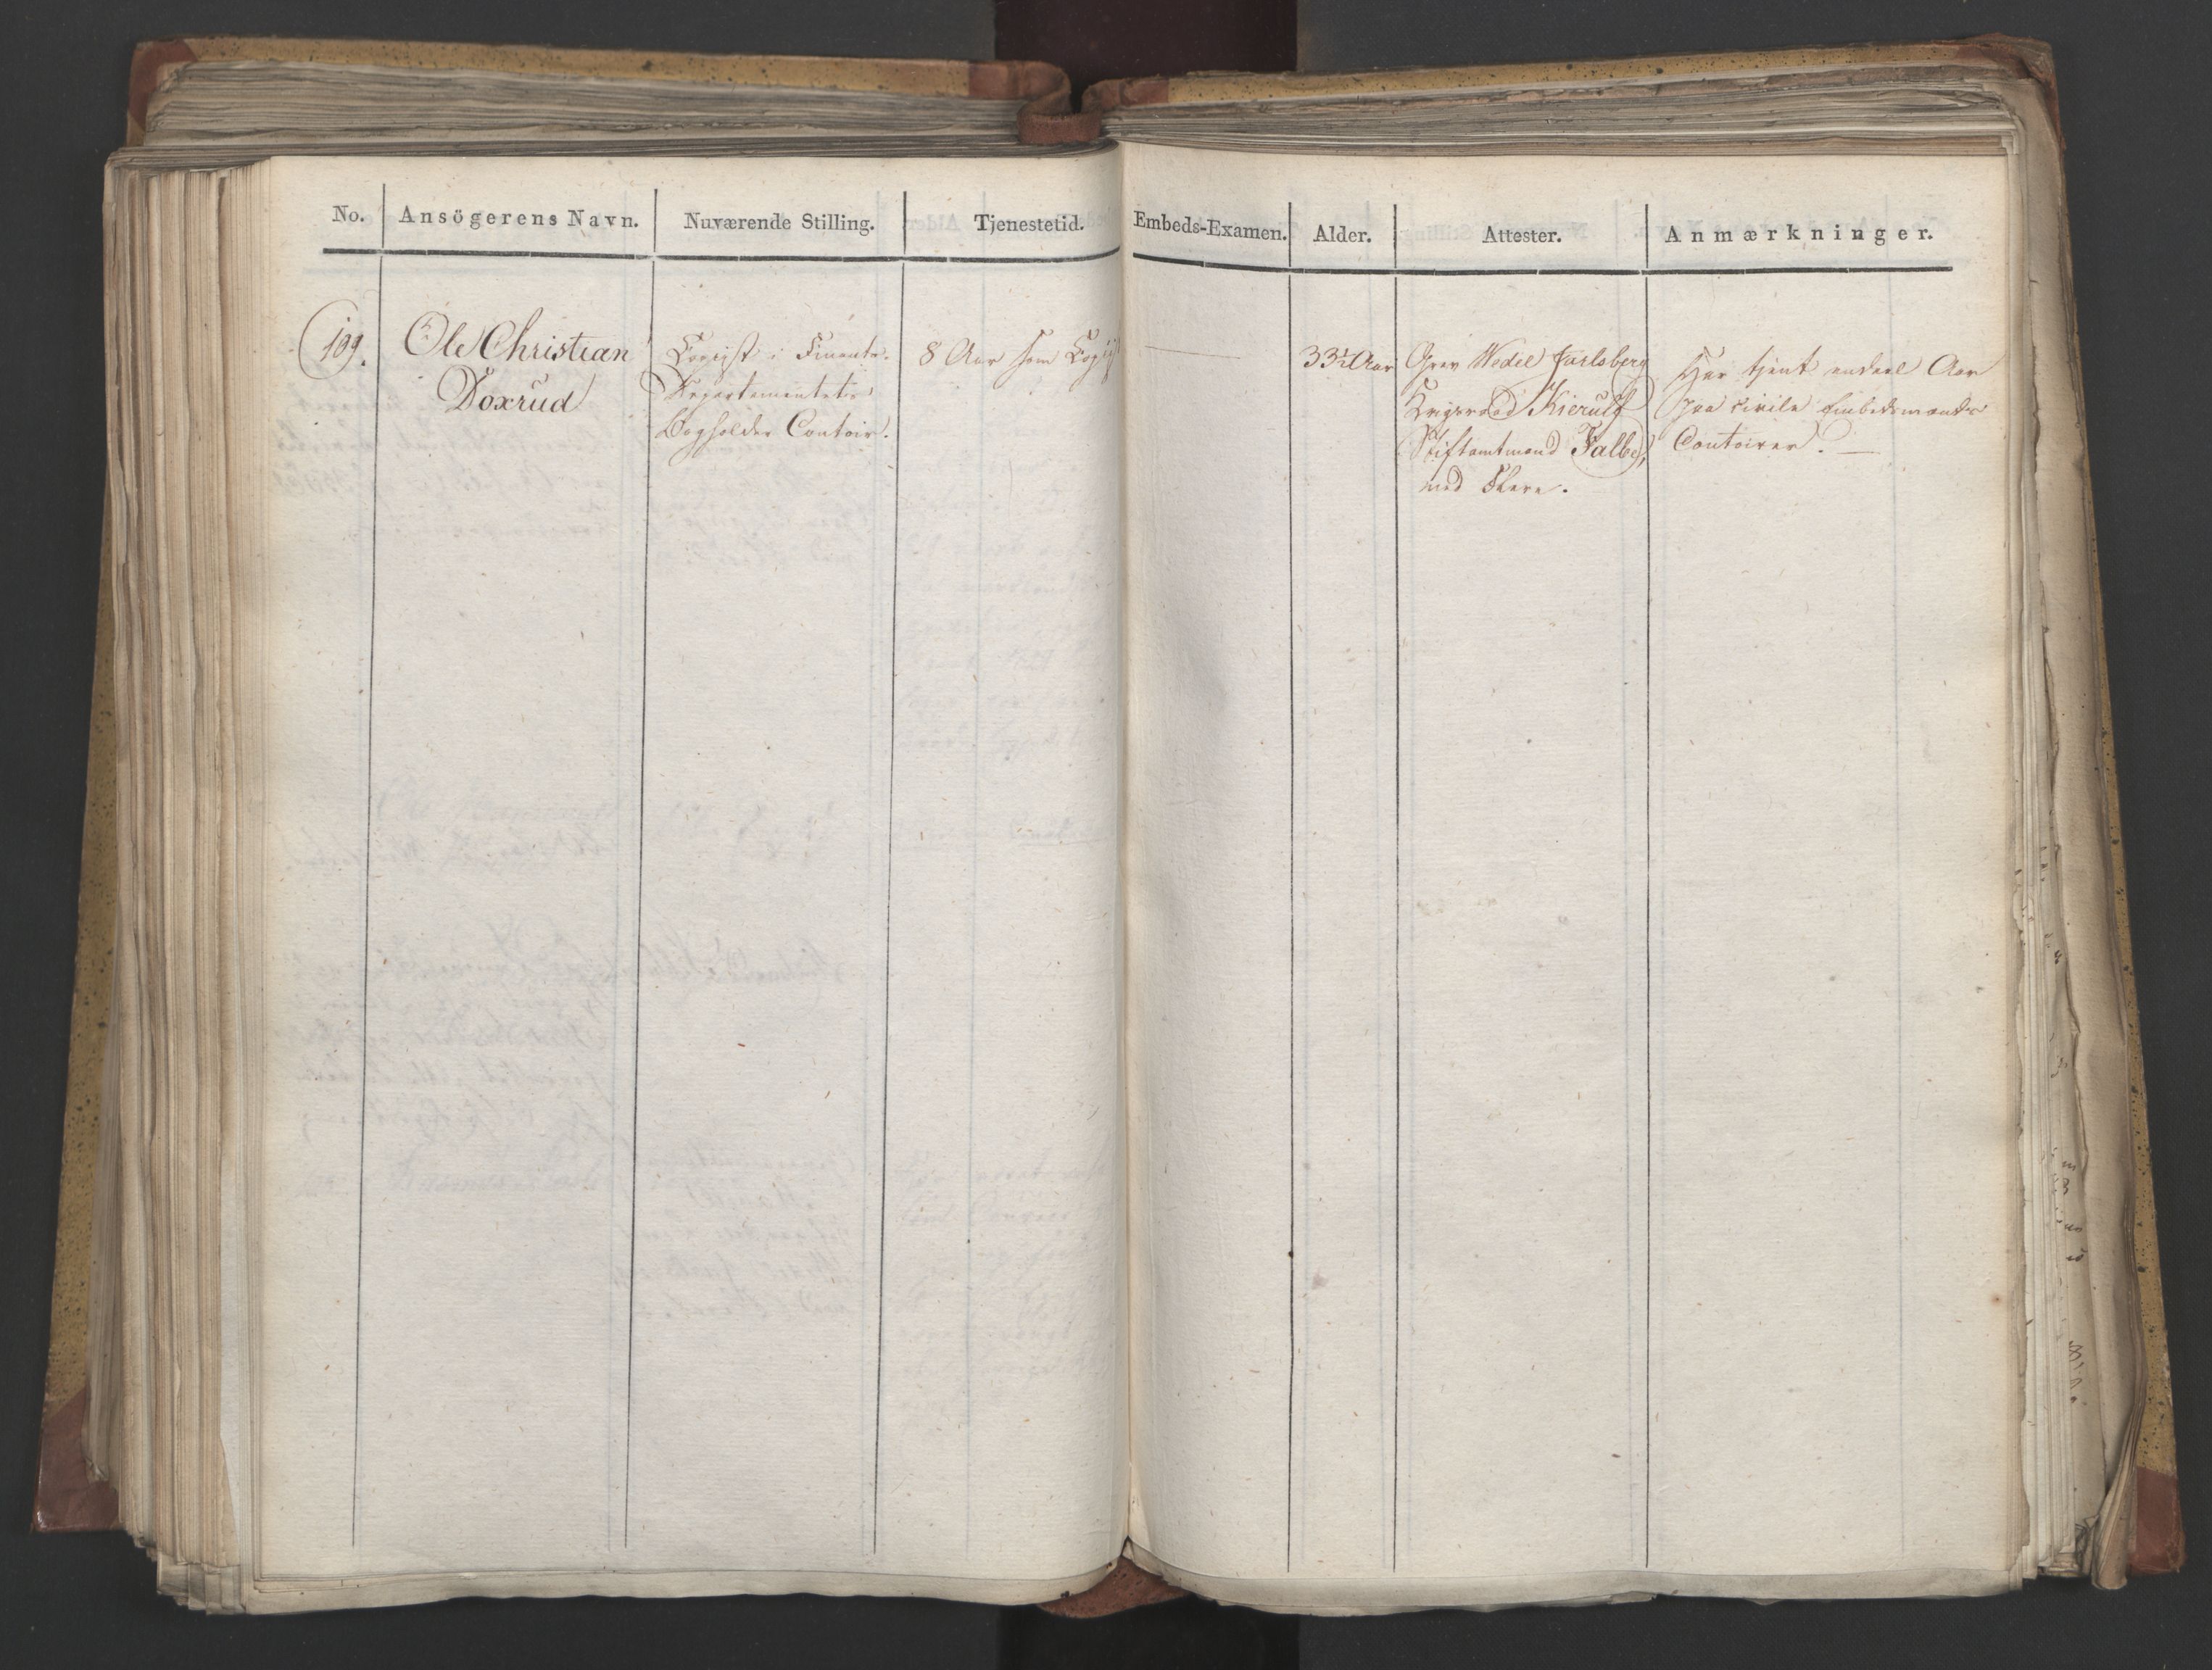 No. Ansögerens Navn. Nuværende Stilling. Tjenestetid. Embeds-Examen. Alder. Attester. Anmærkninger.
109.
Ole Christian
Doxrud
Copiist i Finants-
Departementets
Bogholder Contoir.
8 Aar som Copiist
33½ Aar
Grev Wedel Jarlsberg
Krigsraad Kierulf
Stiftamtmand Falbe,
med Flere.
Har tjent endeel Aar
paa civile Embedsmænds
Contoirer. —